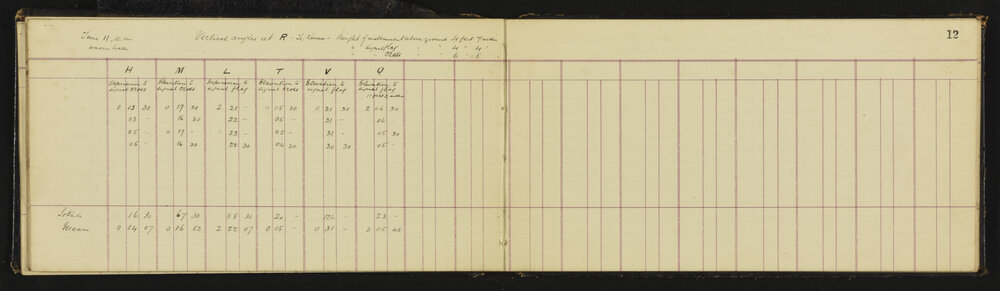 12
Time 11 a.m Vertical angles at R - Te - Height of instrument above ground 4 feet 7 inches
" " signal flag " 4 " 4 "
" " Cross " 6 - 8
H M L T V Q
Depression to Elevation to Depression to Elevation to Elevation to Elevation to
signal cross signal cross signal flag signal cross signal flag signal flag
0 03 30 0 17 30 2 21 - 0 05 30 0 31 30 2 06 30
03 - 16 30 22 - 05 - 31 - 06 -
05 - 0 17 - 23 - 05 - 31 - 05 30
05 - 16 30 22 30 04 30 30 30 05 -
Totals 16 30 67 30 88 30 20 - 124 - 23 -
Mean 0 04 07 0 16 52 2 22 07 0 05 - 0 31 - 2 05 45